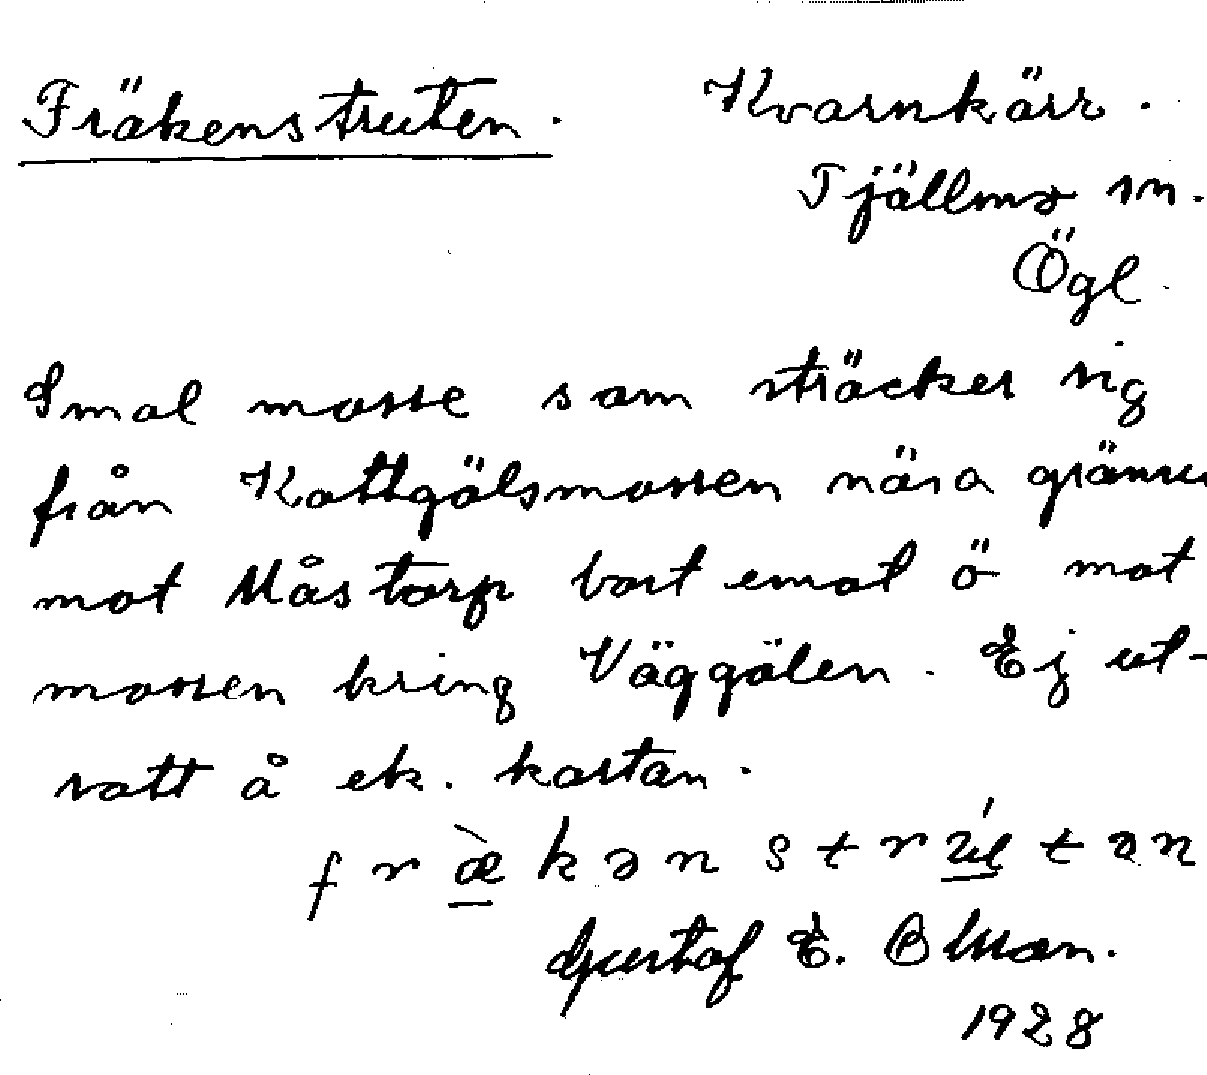 Fräkenstruten. Kvarnkärr.
Tjällmo sn.
Ögl.
Smal mosse som sträcker sig
från Kattgölsmossen nära gränsen
mot Måstorp bort emot ö mot
mossen kring Väggölen. Ej ut-
satt å ek. kartan.
fræ̀kənstrútən
Gustaf E. Ohlson.
1928